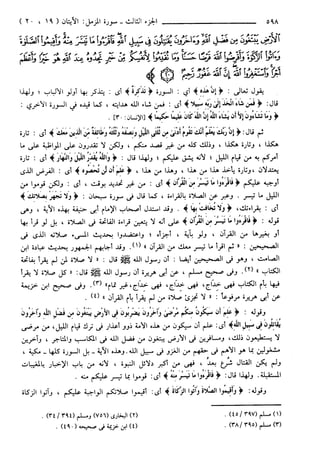 ٥٩٨ الجزء الثالث - سورة المزمل: الآيتان (١٩ ، ٢٠)
الْأَرْضِ يَبْتَغُونَ مِن فَضْلِ اللَّهِ وَآخَرُونَ يُقَاتِلُونَ فِي سَبِيلِ اللَّهِ فَاقْرَءُوا مَا تَيَسَّرَ مِنْهُ وَأَقِيمُوا الصَّلَاةَ
وَآتُوا الزَّكَاةَ وَأَقْرِضُوا اللَّهَ قَرْضًا حَسَنًا وَمَا تُقَدِّمُوا لِأَنفُسِكُم مِّنْ خَيْرٍ تَجِدُوهُ عِندَ اللَّهِ هُوَ خَيْرًا وَأَعْظَمَ
أَجْرًا وَاسْتَغْفِرُوا اللَّهَ إِنَّ اللَّهَ غَفُورٌ رَّحِيمٌ
يقول تعالى : ﴿ إِنَّ هَذِهِ ﴾ أي : السورة ﴿ تَذْكِرَةٌ ﴾ أي : يتذكر بها أولو الألباب ؛ ولهذا
قال : ﴿ فَمَن شَاءَ اتَّخَذَ إِلَى رَبِّهِ سَبِيلًا ﴾ أي : فمن شاء الله هدايته ، كما قيده في السورة الأخرى :
﴿ وَمَا تَشَاءُونَ إِلَّا أَن يَشَاءَ اللَّهُ إِنَّ اللَّهَ كَانَ عَلِيمًا حَكِيمًا ﴾ [الإنسان : ٣٠] .
ثم قال : ﴿ إِنَّ رَبَّكَ يَعْلَمُ أَنَّكَ تَقُومُ أَدْنَى مِن ثُلُثَيِ اللَّيْلِ وَنِصْفَهُ وَثُلُثَهُ وَطَائِفَةٌ مِّنَ الَّذِينَ مَعَكَ ﴾ أي : تارة
هكذا ، وتارة هكذا ، وذلك كله من غير قصد منكم ، ولكن لا تقدرون على المواظبة على ما
أمركم به من قيام الليل ؛ لأنه يشق عليكم ؛ ولهذا قال : ﴿ وَاللَّهُ يُقَدِّرُ اللَّيْلَ وَالنَّهَارَ ﴾ أي : تارة
يعتدلان ، وتارة يأخذ هذا من هذا ، وهذا من هذا ، ﴿ عَلِمَ أَن لَّن تُحْصُوهُ ﴾ أي : الفرض الذي
أوجبه عليكم ﴿ فَاقْرَءُوا مَا تَيَسَّرَ مِنَ الْقُرْآنِ ﴾ أي : من غير تحديد بوقت ، أي : ولكن قوموا من
الليل ما تيسر . وعبر عن الصلاة بالقراءة ، كما قال في سورة سبحان : ﴿ وَلَا تَجْهَرْ بِصَلَاتِكَ ﴾
أي : بقراءتك ، ﴿ وَلَا تُخَافِتْ بِهَا ﴾ . وقد استدل أصحاب الإمام أبي حنيفة بهذه الآية ، وهي
قوله : ﴿ فَاقْرَءُوا مَا تَيَسَّرَ مِنَ الْقُرْآنِ ﴾ على أنه لا يتعين قراءة الفاتحة في الصلاة ، بل لو قرأ بها
أو بغيرها من القرآن ، ولو بآية ، أجزأه ؛ واعتضدوا بحديث المسيء صلاته الذي في
الصحيحين : « ثم اقرأ ما تيسر معك من القرآن » (١) . وقد أجابهم الجمهور بحديث عبادة ابن
الصامت ، وهو في الصحيحين أيضا : أن رسول الله ﷺ قال : « لا صلاة لمن لم يقرأ بفاتحة
الكتاب » (٢) . وفي صحيح مسلم ، عن أبي هريرة أن رسول الله ﷺ قال : « كل صلاة لا يقرأ
فيها بأم الكتاب فهي خداج ، فهي خداج ، فهي خداج ، غير تمام » (٣) . وفي صحيح ابن خزيمة
عن أبي هريرة مرفوعا : « لا تجزئ صلاة من لم يقرأ بأم القرآن » (٤) .
وقوله : ﴿ عَلِمَ أَن سَيَكُونُ مِنكُم مَّرْضَى وَآخَرُونَ يَضْرِبُونَ فِي الْأَرْضِ يَبْتَغُونَ مِن فَضْلِ اللَّهِ وَآخَرُونَ
يُقَاتِلُونَ فِي سَبِيلِ اللَّهِ ﴾ أي : علم أن سيكون من هذه الأمة ذوو أعذار في ترك قيام الليل ، من مرضى
لا يستطيعون ذلك ، ومسافرين في الأرض يبتغون من فضل الله في المكاسب والمتاجر ، وآخرين
مشغولين بما هو الأهم في حقهم من الغزو في سبيل الله . وهذه الآية - بل السورة كلها - مكية ،
ولم يكن القتال شُرع بعدُ ، فهي من أكبر دلائل النبوة ، لأنه من باب الإخبار بالمغيبات
المستقبلة . ولهذا قال : ﴿ فَاقْرَءُوا مَا تَيَسَّرَ مِنْهُ ﴾ أي : قوموا بما تيسر عليكم منه .
وقوله : ﴿ وَأَقِيمُوا الصَّلَاةَ وَآتُوا الزَّكَاةَ ﴾ أي : أقيموا صلاتكم الواجبة عليكم ، وآتوا الزكاة
(١) مسلم (٣٩٧ / ٤٥) . (٢) البخاري (٧٥٦) ومسلم (٣٩٤ / ٣٤) .
(٣) مسلم (٣٩٥ / ٣٨) . (٤) ابن خزيمة في صحيحه (٤٩٠) .